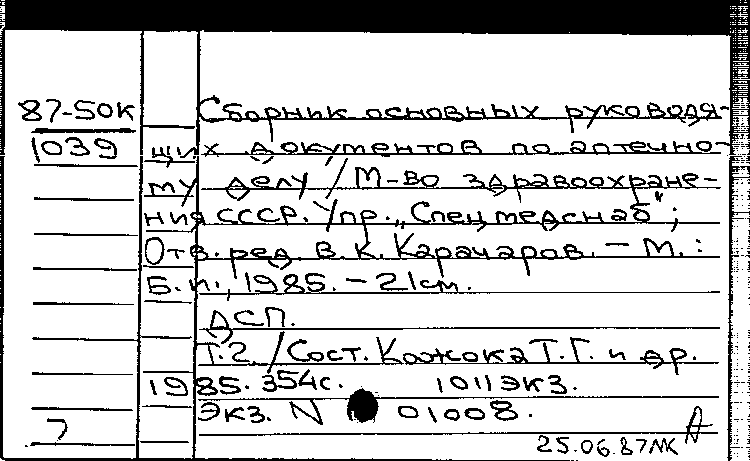 87-50К
1039
Сборник основных руководя-
щих документов по аптечно-
му делу / М-во здравоохране-
ния СССР. Упр. „Спецмедснаб";
Отв. ред. В. К. Карачаров. – М. :
Б. и., 1985. – 21 см.
ДСП.
Т. 2. / Сост. Кажока Т. Г. и др.
1985. 354 с. 1011 экз.
Экз. N 01008.
25.06.87